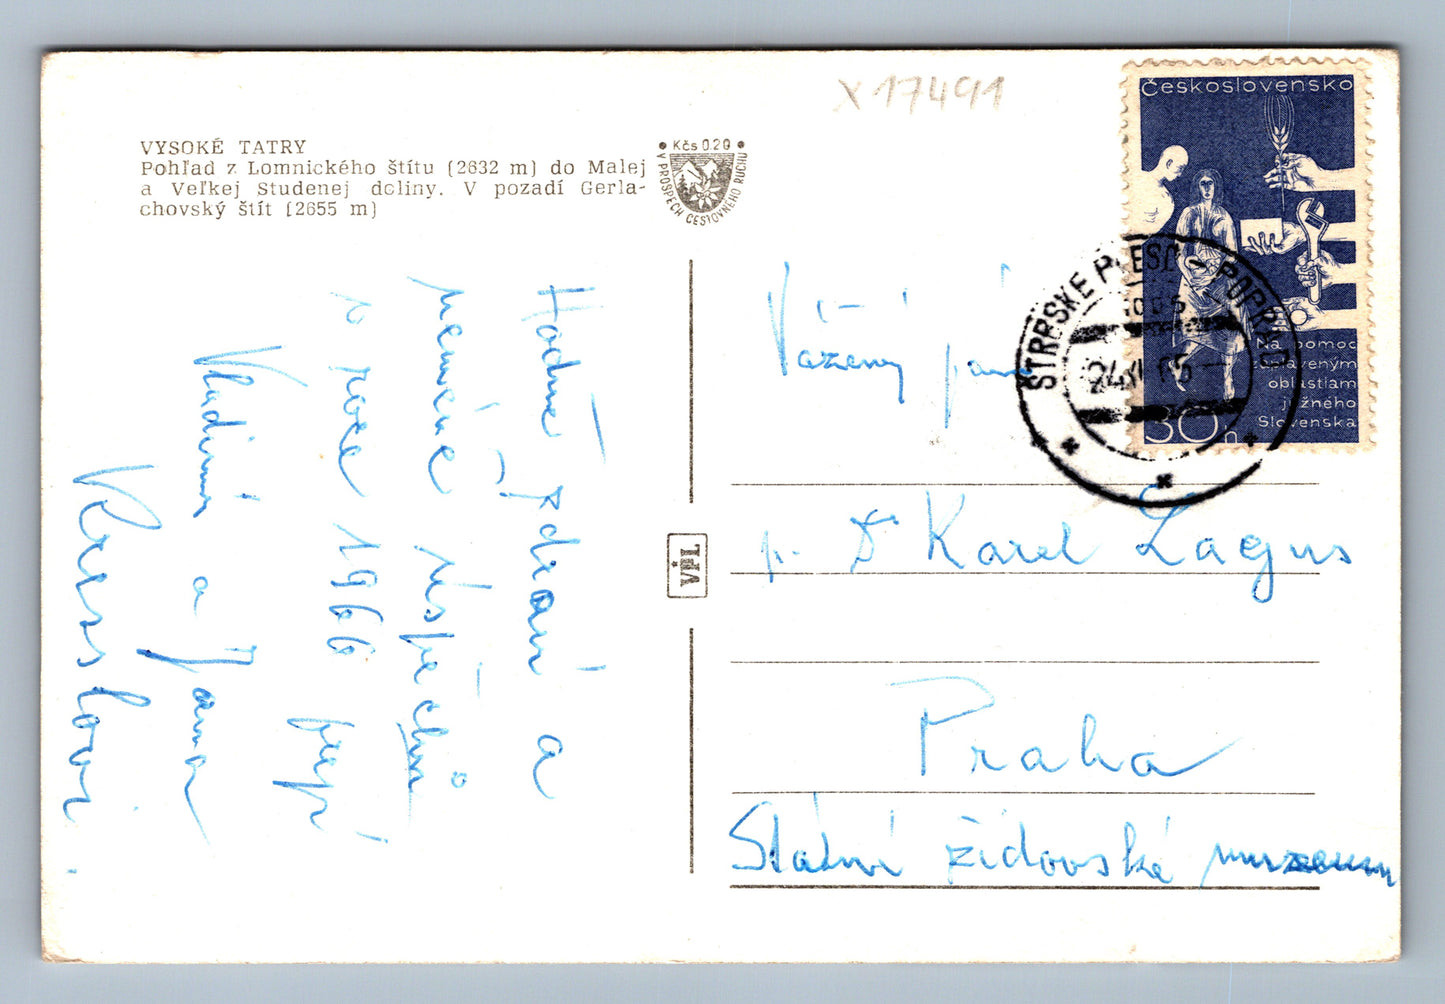 x 17491
VYSOKÉ TATRY
Pohľad z Lomnického štítu (2632 m) do Malej
a Veľkej Studenej doliny. V pozadí Gerla-
chovský štít (2655 m)
Kčs 0.20
V PROSPECH CESTOVNÉHO RUCHU
Československo
Na pomoc
zaplaveným
oblastiam
južného
Slovenska
30h
ŠTRBSKÉ PLESO - POPRAD
Hodně zdraví a
neméně úspěchů
v roce 1966 přejí
Vladimír a Jana
VPL
Vážený pan
p. Dr Karel Lagus
Praha
Státní židovské muzeum